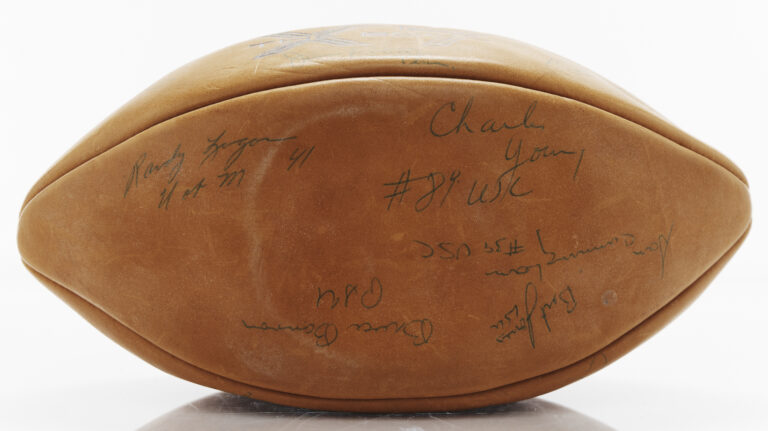 Randy Logan
U of M 41
Charle
Young
#89 USC
Sam
Cunningham #39 USC
Bruce Bannon
PSU
Bert Jones
LSU